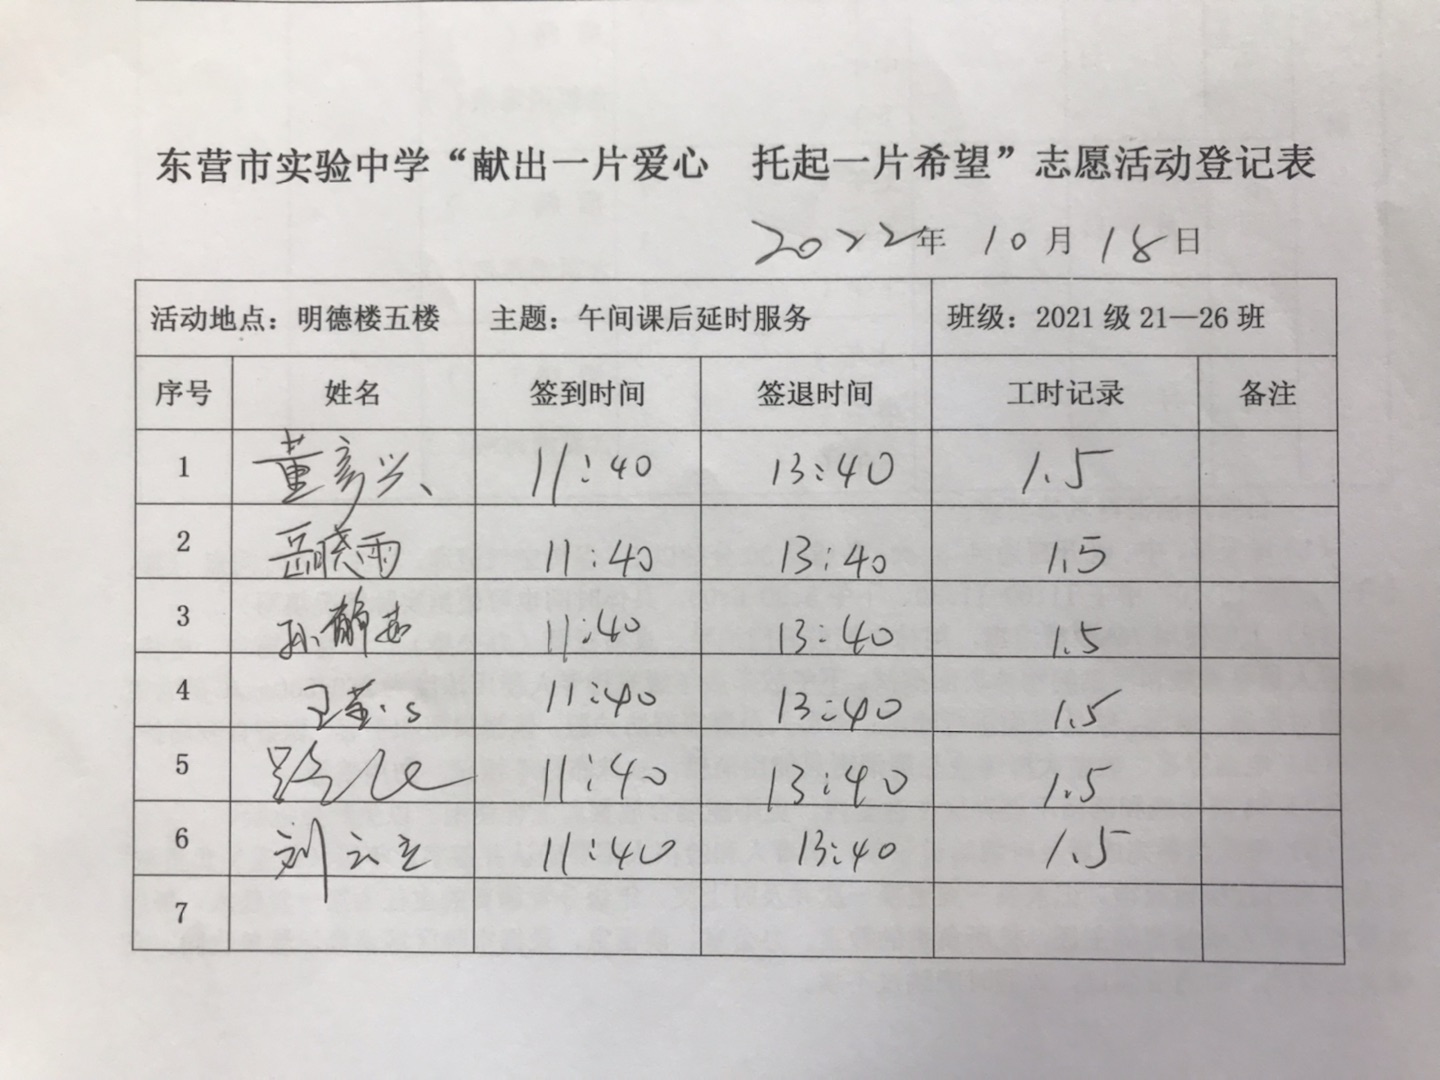 东营市实验中学“献出一片爱心 托起一片希望”志愿活动登记表
2022年 10月 18日
活动地点：明德楼五楼 主题：午间课后延时服务 班级：2021级21—26班
序号 姓名 签到时间 签退时间 工时记录 备注
1 董彦兴 11:40 13:40 1.5
2 岳晓雨 11:40 13:40 1.5
3 孙静 11:40 13:40 1.5
4 11:40 13:40 1.5
5 路 11:40 13:40 1.5
6 刘云立 11:40 13:40 1.5
7